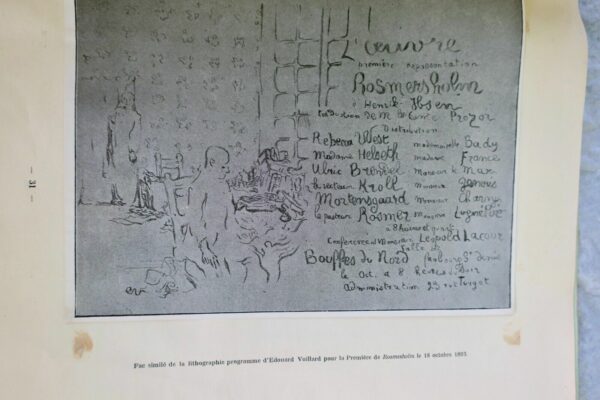 — 31 —
L'œuvre
première représentation
Rosmersholm
d'Henrik Ibsen
traduction de M. le Comte Prozor
Distribution
Rebecca West mademoiselle Bady
Madame Helseth madame France
Ulric Brendel Monsieur de Max
le recteur Kroll Monsieur
Mortensgaard Monsieur Charny
le pasteur Rosmer Monsieur Lugné-Poe
à 8 heures et quart
Conférence de Monsieur Léopold Lacour
Salle des
Bouffes du Nord faubourg St Denis
le Oct. à 8 heures du soir
administration 23 rue Turgot
Fac similé de la lithographie programme d'Edouard Vuillard pour la Première de Rosmersholm le 16 octobre 1893